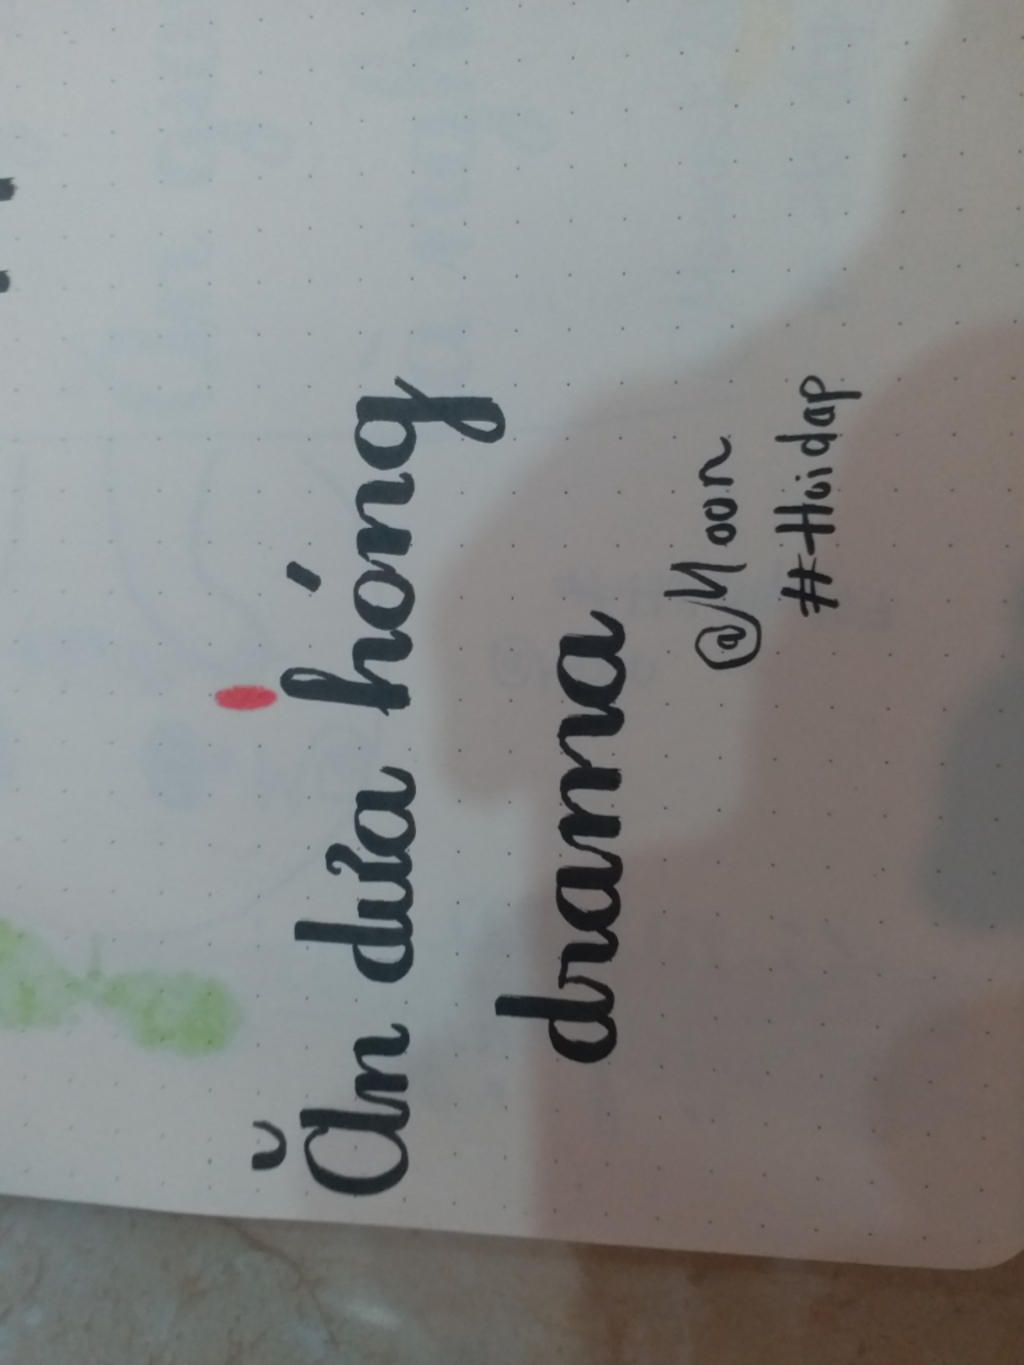 Ăn dưa hóng
drama
@Moon
#Hoidap